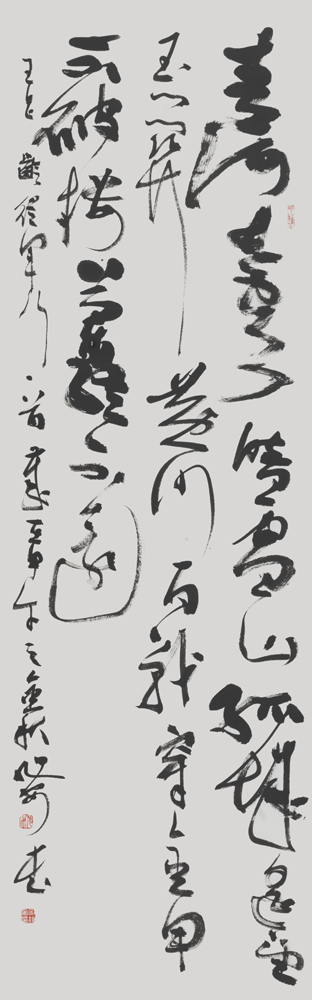 青海長雲暗雪山孤城遙望
玉門關黃沙百戰穿金甲
不破樓蘭終不還
王昌齡從軍行一首歲在甲午之金秋書